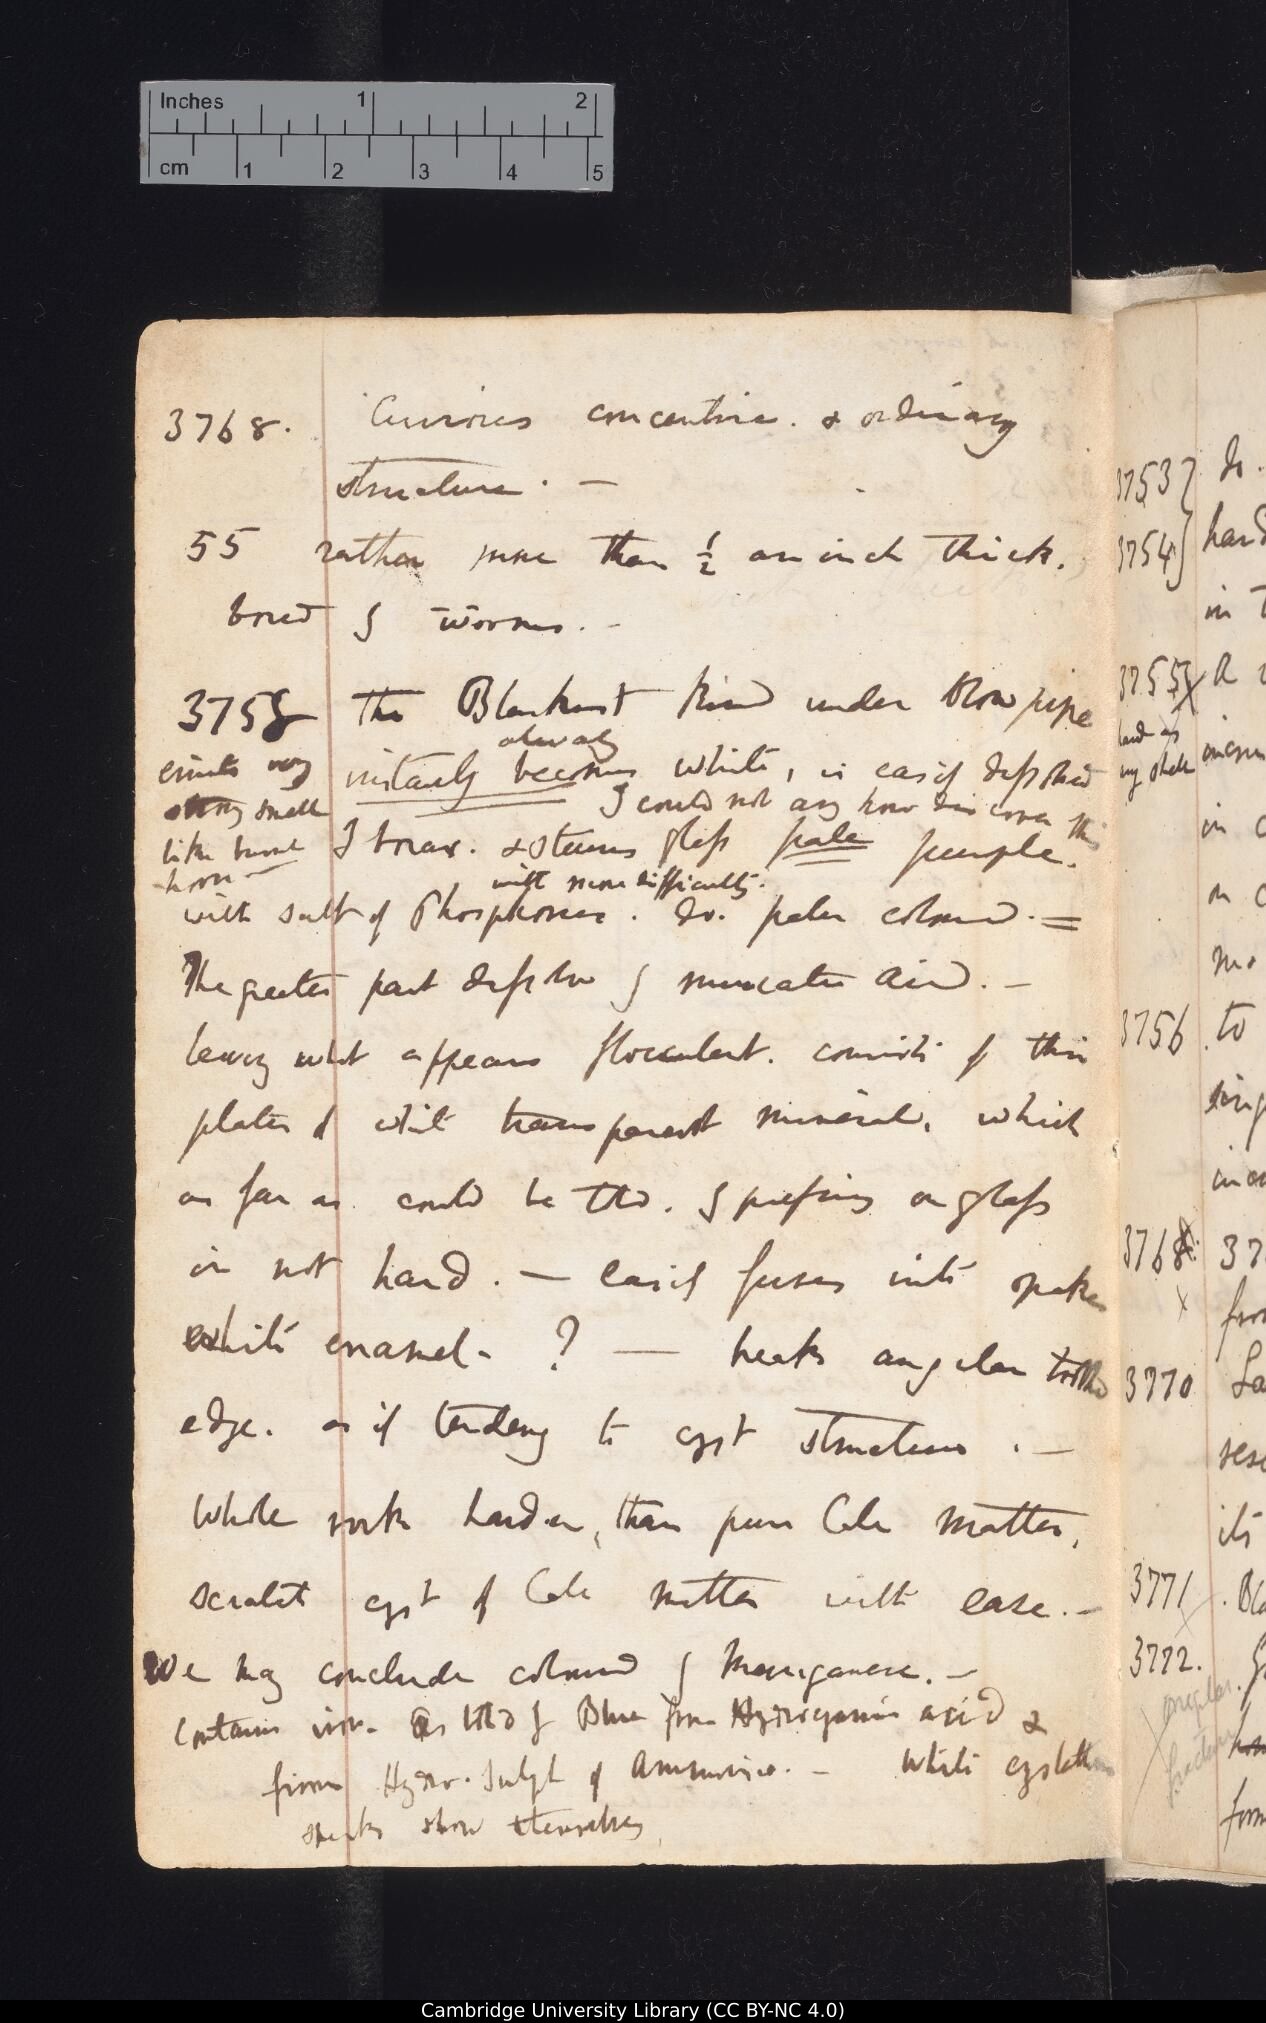 Inches 1 2
cm 1 2 3 4 5
3768. Curious concentric. & ordinary
structure. —
55 rather more than ½ an inch thick.
bored by worms. —
3755 The Blackest kind under Blow pipe
always
emits very
instantly becomes white, is easily dissolved
strong smell
I could not any how discover this
like burnt
horn —
by borax. & stains glass pale purple.
with more difficulty.
with salt of Phosphorus. do. paler colour. =
The greater part dissolves by muriatic acid. —
leaving what appears flocculent. consists of thin
plates of white transparent mineral, which
as far as could be told. by pressing on glass
is not hard. — easily fuses into opake
white enamel. ? — breaks angular
edge. as if tendency to cryst structure. —
Whole rock harder, than pure Calc matter,
scratch cryst of Calc matter with ease. —
We may conclude coloured by Manganese. —
Contains iron. as told by Blue from Hydrocyanic acid &
from Hydro-Sulph of Ammonia. — White
specks show themselves
3753 do.
3754 hard
in
3755
hard as
my
in
3756 to
3768
3770
3771
3772.
angular
fracture
Cambridge University Library (CC BY-NC 4.0)